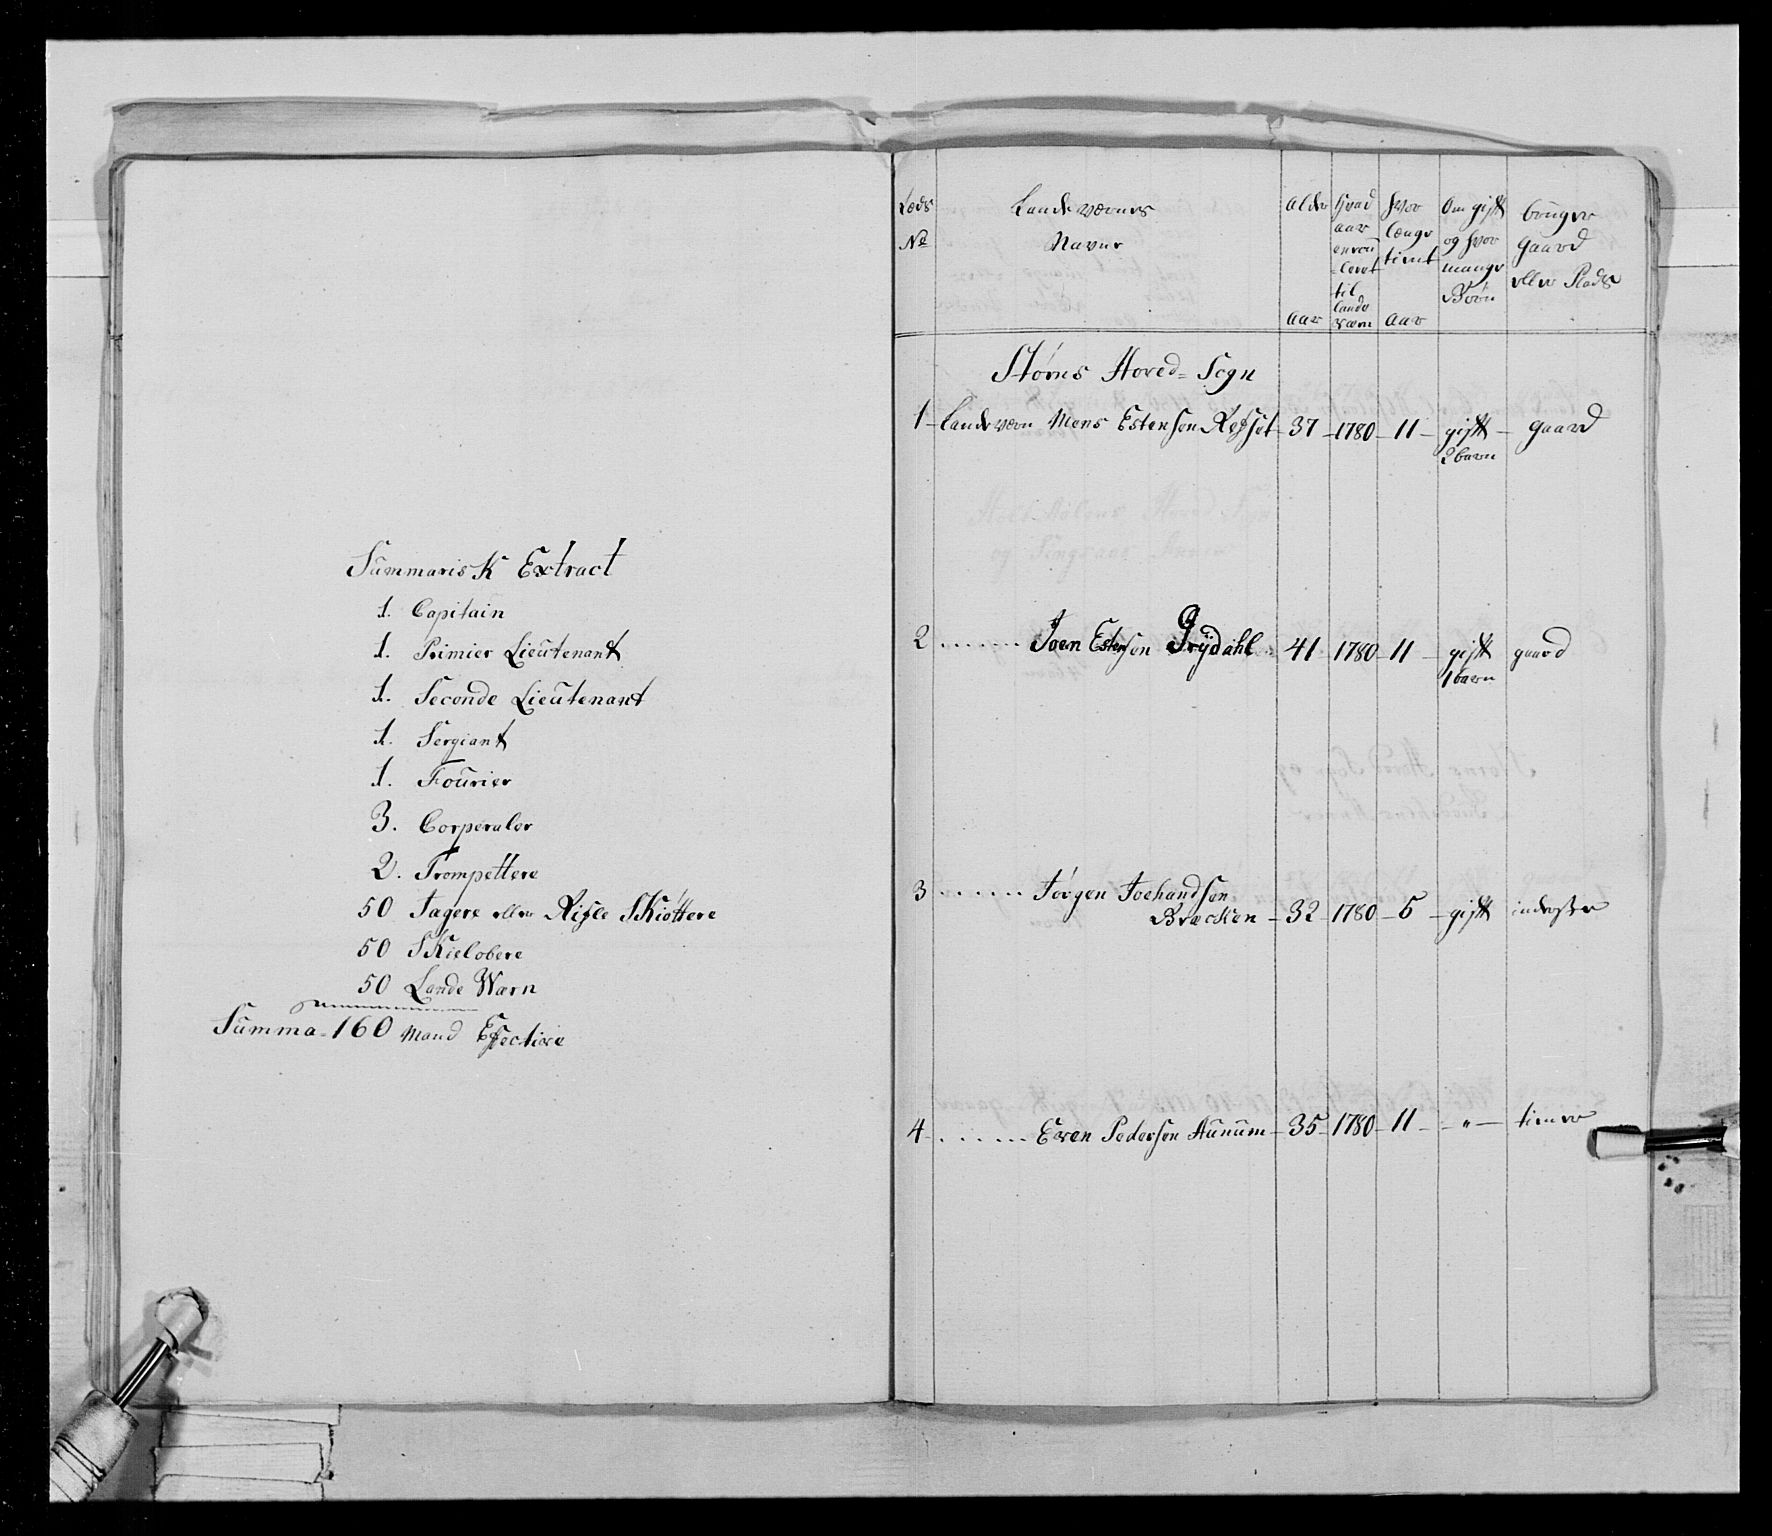 Summarisk Extract
1. Capitain
1. Primier Lieutenant
1. Seconde Lieutenant
1. Sergiant
1. Fourier
3. Corperaler
2. Trompettere
50 Jagere eller Rifle Skiöttere
50 Skielobere
50 Lande Warn
Summa - 160 Mand Effective
Læds No
Landeværnes Navne
alder aar
hvad aar enroulleret til Lande værn
hvor længe tient aar
Om gift og hvor mange Börn
bruger gaard eller Plads
Störns Hoved-Sogn
1 - Landeværn Mons Estensen Refset - 37 - 1780 - 11 - gift - gaard
2 barn
2 ....... Joen Estensen - 41 - 1780 - 11 - gift gaard
1 barn
3 ....... Jörgen Joehandsen
Bræcken - 32 - 1780 - 5 - gift inderster
4 ....... Even Pedersen Aunum - 35 - 1780 - 11 - " - tiener